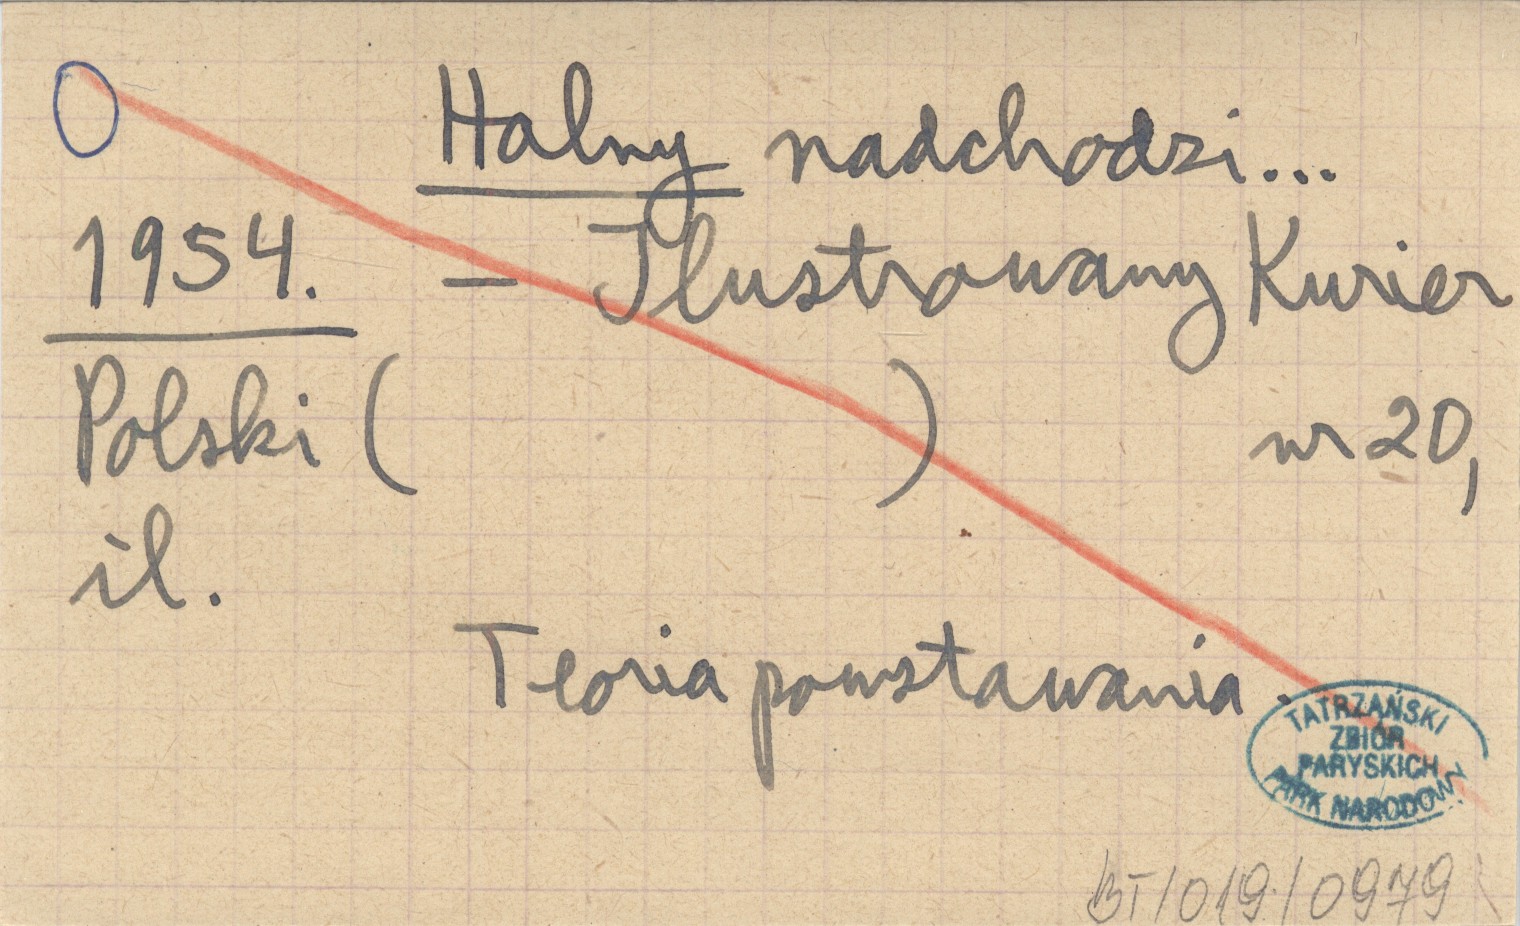 Halny nadchodzi...
1954. – Ilustrowany Kurier
Polski ( ) nr 20,
il.
Teoria powstawania.
TATRZAŃSKI
ZBIÓR
PARYSKICH
PARK NARODOWY
BT/019/0979